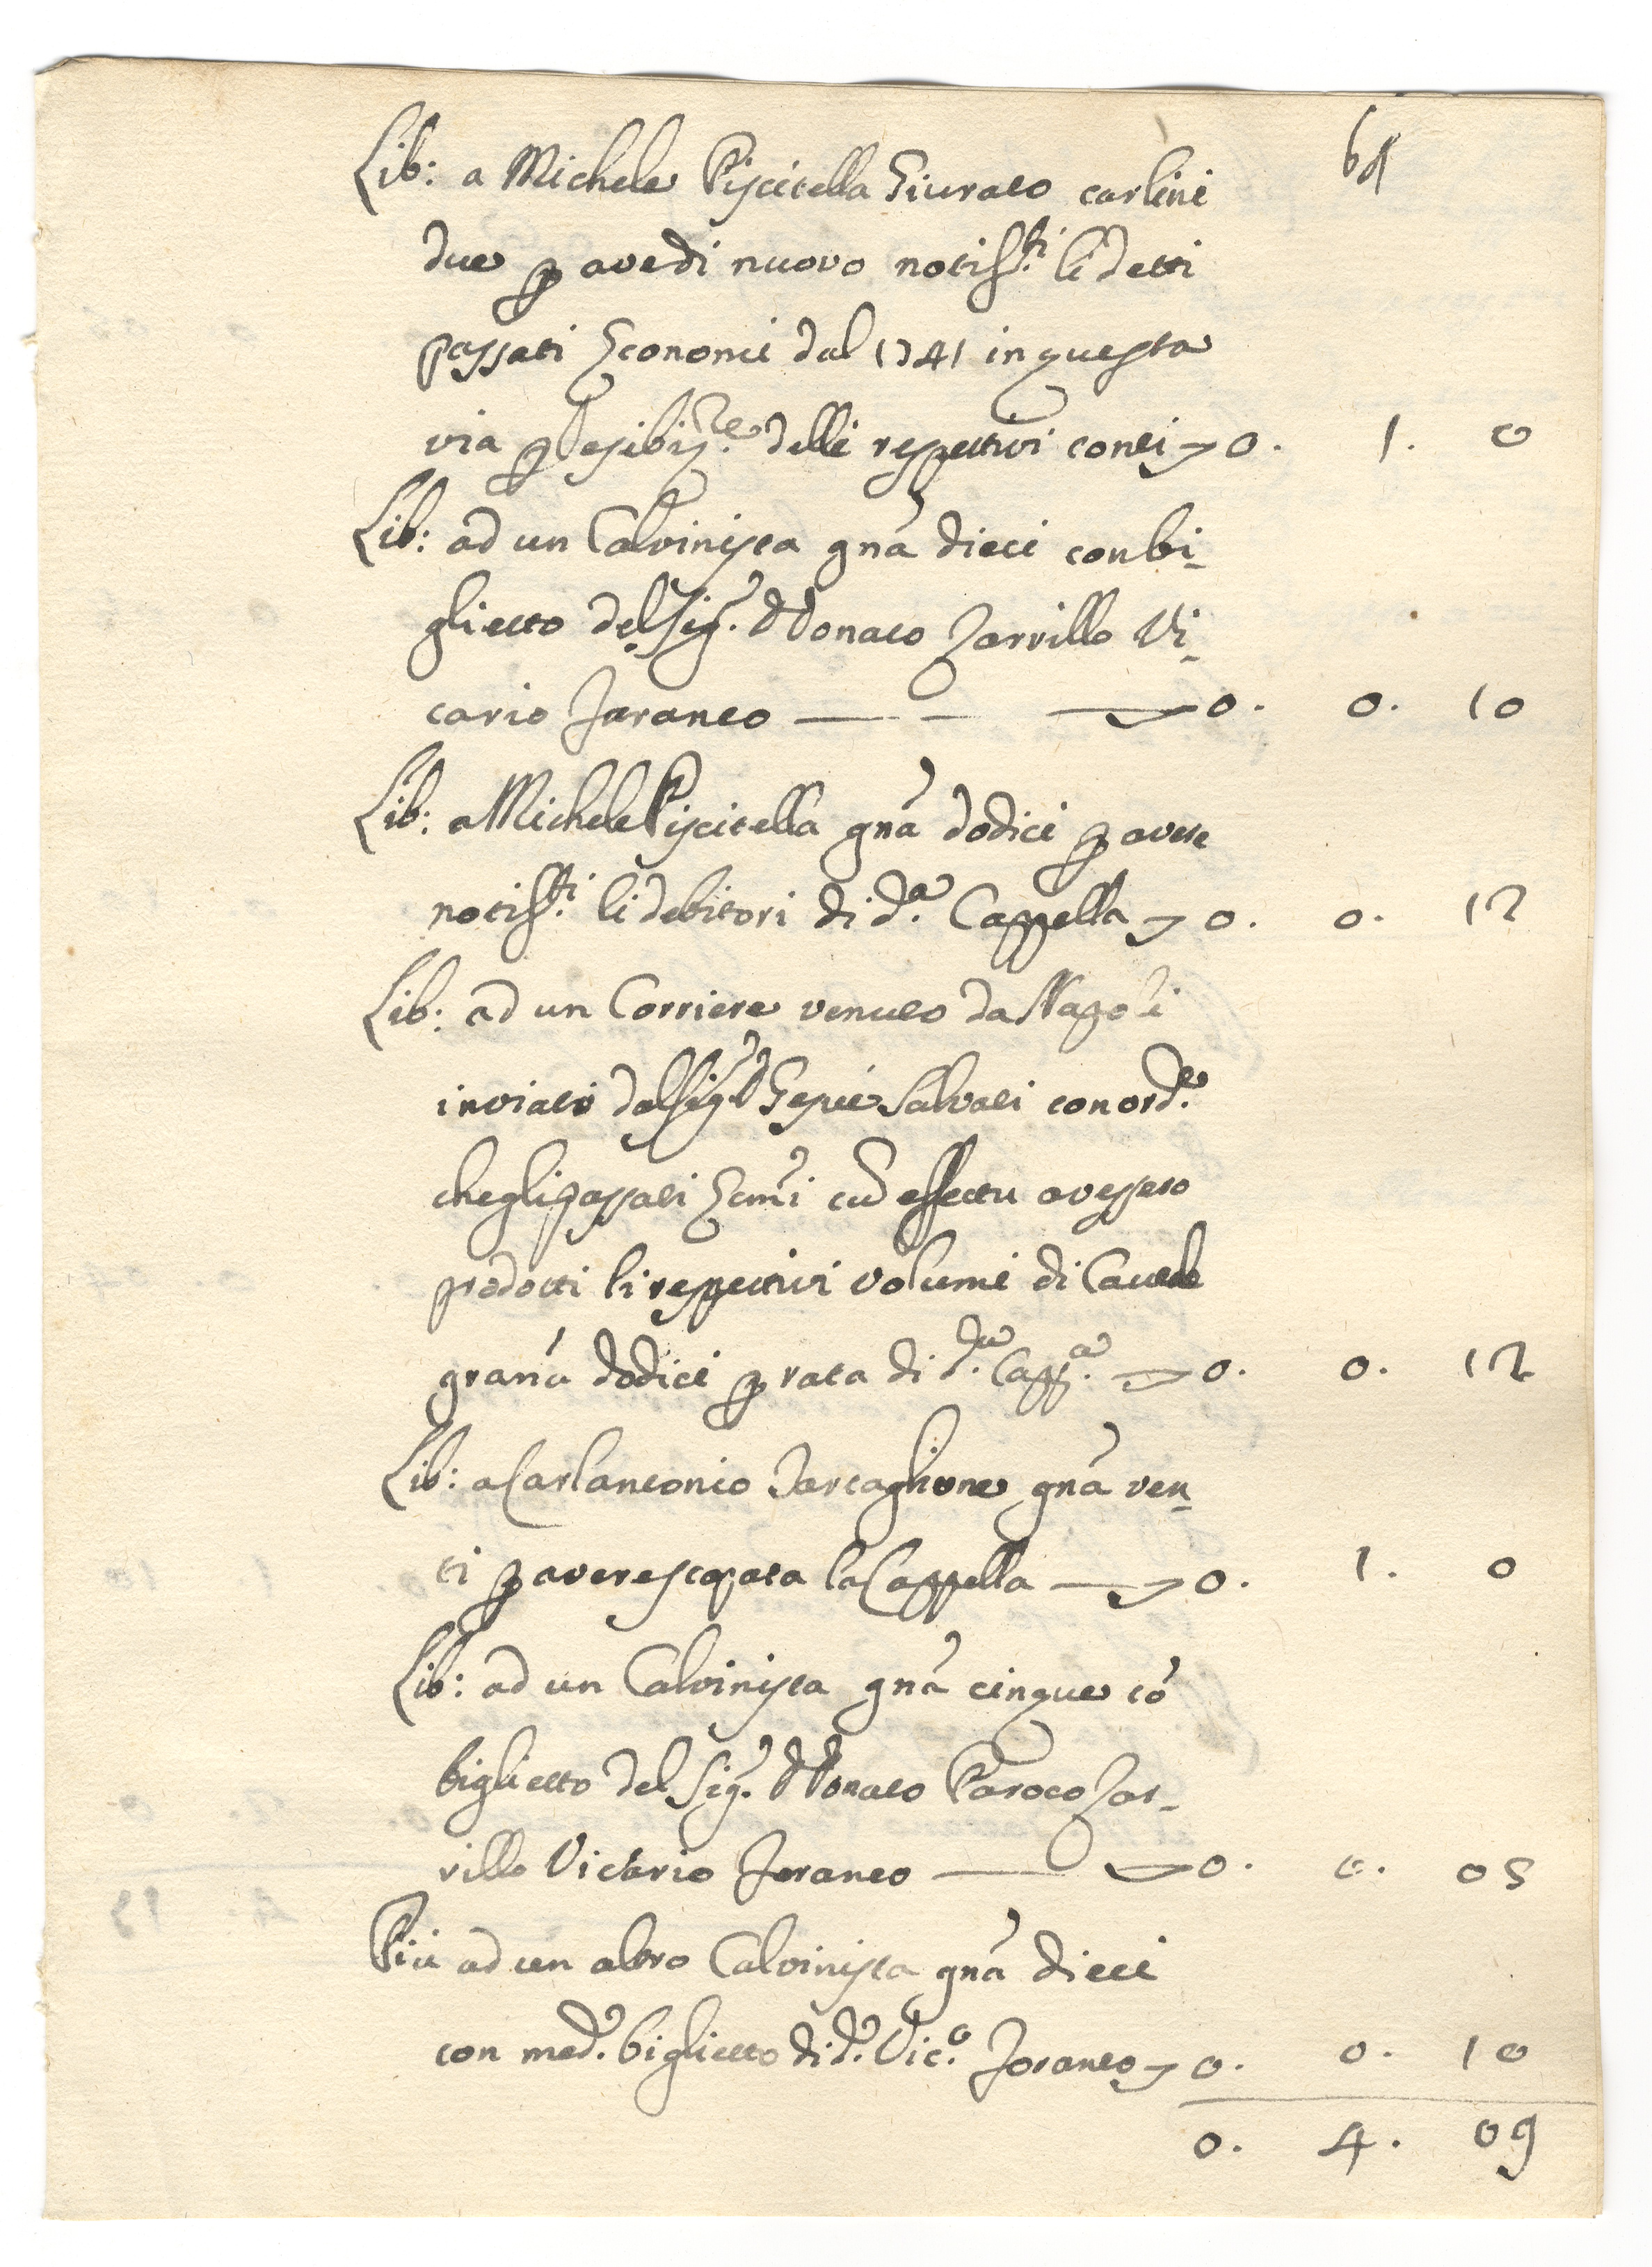 Lib: a Michele Piscitella Giurato carlini
due p avedi nuovo notif.ti li detti
passati Economi dal 1741 in questa
via p l'esibiz.ne delli respettivi conti 0. 1. 0
Lib: ad un Calvinista gnà dieci con bi-
glietto del Sig.r D Donato Iarrillo Vi-
cario Foraneo — — 0. 0. 10
Lib: a Michele Piscitella gnà dodici p avere
notif.ti li debitori di d.a Cappella 0. 0. 12
Lib: ad un Corriere venuto da Napoli
inviato dal Sig.r D Gepie Salvati con ord.e
che gli passati Ecmi cū effectu avessero
prodotti li respettivi volumi di Cautele
granà dodici p rata di d.ta Capp.a 0. 0. 12
Lib: a Carlantonio Tartaglione gnà ven-
ti p avere scopata la Cappella — 0. 1. 0
Lib: ad un Calvinista gnà cinque cō
biglietto del Sig.r D Donato Paroco Iar-
rillo Victario Foraneo — 0. 0. 05
Più ad un altro Calvinista gnà dieci
con med.o biglietto di d.o Vic.o Foraneo 0. 0. 10
0. 4. 09